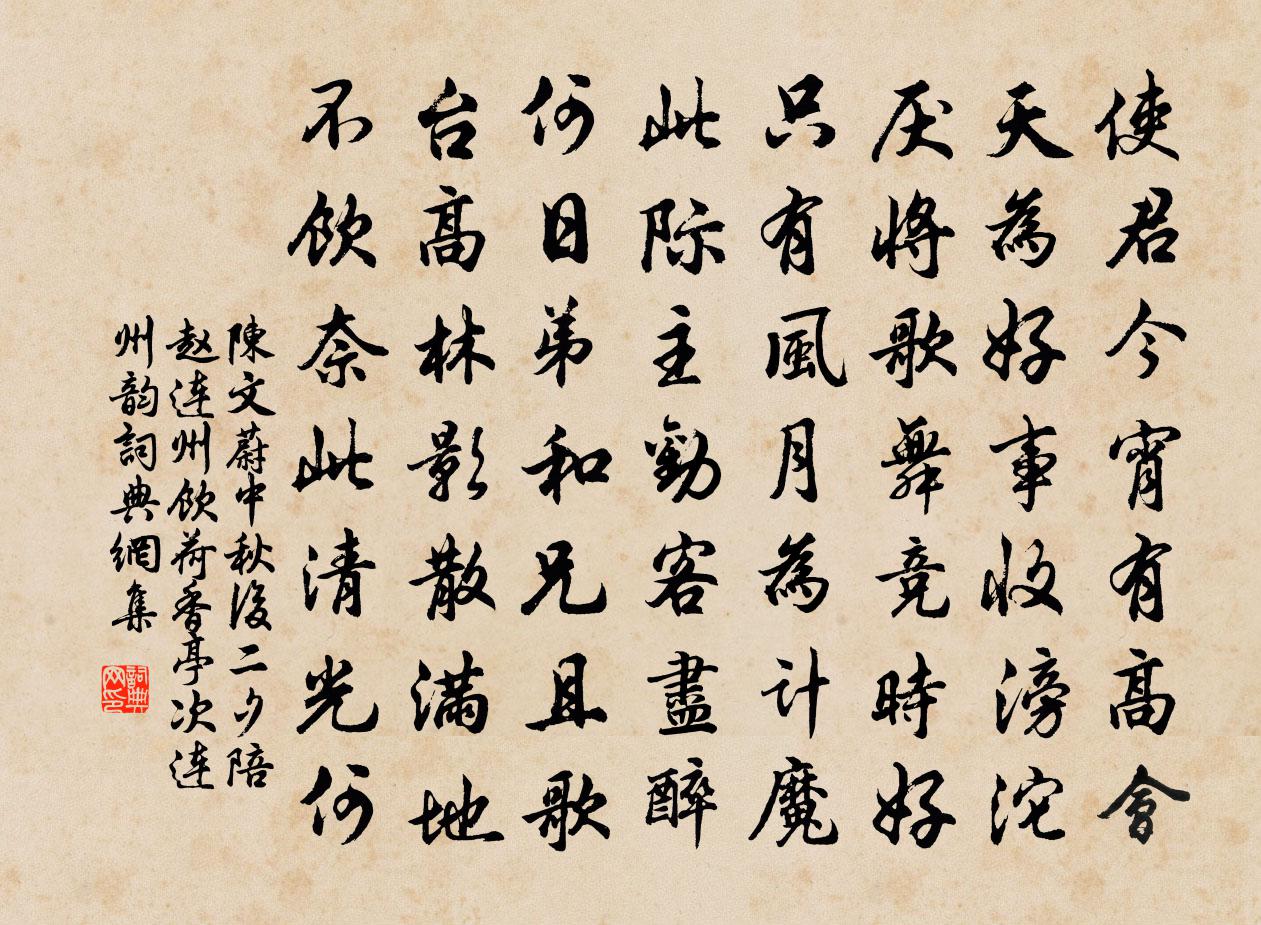 使君今宵有高會
天為好事收滂沱
厌將歌舞竞時好
只有風月為计魔
此际主勸客盡醉
何日弟和兄且歌
台高林影散滿地
不飲奈此清光何
陳文蔚中秋後二夕陪
赵連州飲荷香亭次連
州韵詞典網集
詞典
网印